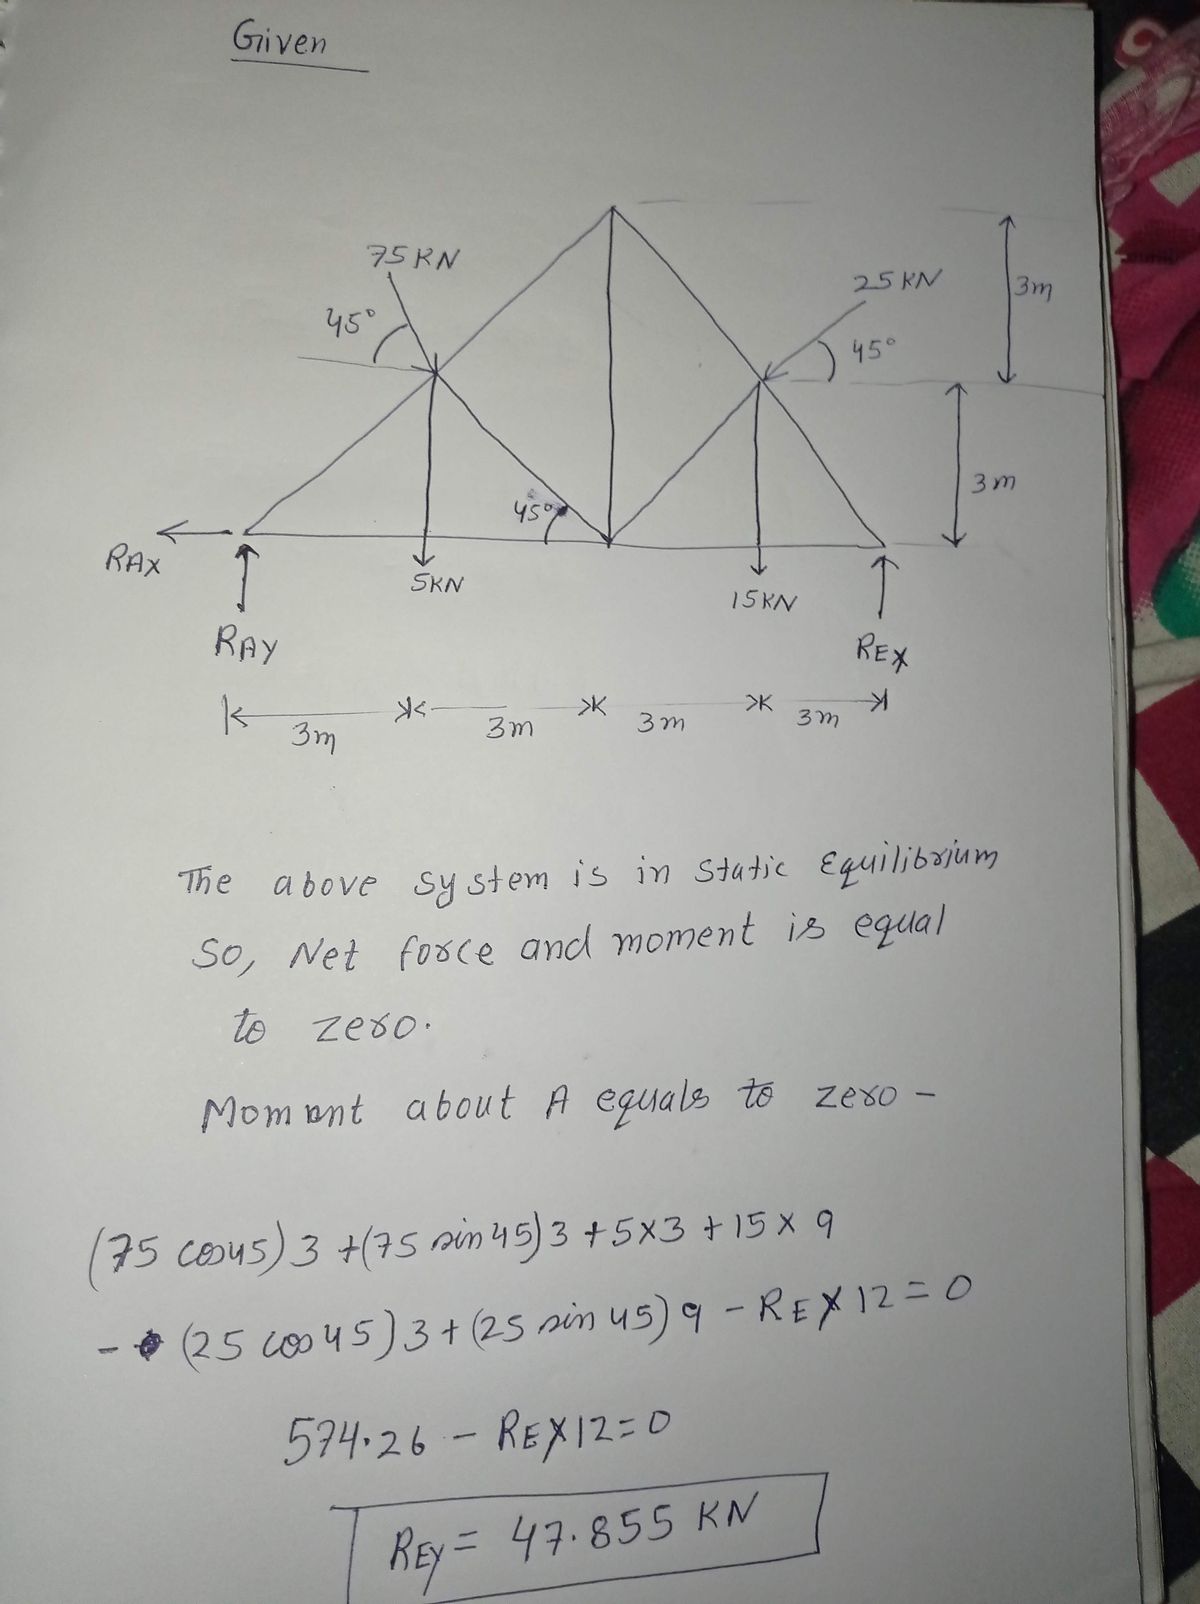 Given
75 KN
25 KN
3m
45°
45°
3m
45°
RAX
5KN
15KN
RAY
REX
3m
3m
3m
3m
The above system is in static Equilibrium
So, Net force and moment is equal
to zero.
Moment about A equals to zero -
(75 cos45) 3 + (75 sin 45) 3 + 5x3 + 15 x 9
- (25 cos 45) 3 + (25 sin 45) 9 - RE X 12 = 0
574.26 - REX12=0
REY = 47.855 KN